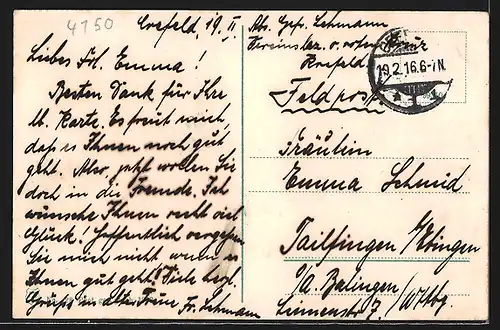 4750
Crefeld, 19. II.
Liebes Frl. Emma!
Besten Dank für Ihre
lb. Karte. Es freut mich
daß es Ihnen noch gut
geht. Also, jetzt wollen Sie
doch in die Fremde. Ich
wünsche Ihnen recht viel
Glück! Hoffentlich vergessen
Sie mich nicht wenn es
Ihnen gut geht! Viele herzl.
Grüße in alter Treue Fr. Lehmann
Abs. Gefr. Lehmann
Vereinslaz. v. roten Kreuz
Krefeld
19.2.16.6-7N.
Feldpost
Fräulein
Emma Schmid
Tailfingen b/Ebingen
O/A. Balingen
7. /Wttbg.